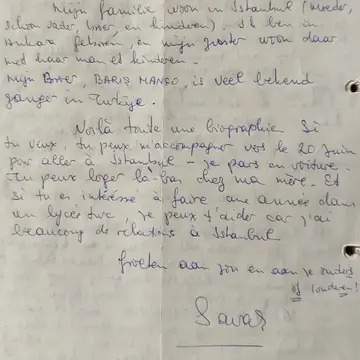 Mijn familie woon in Istanbul (moeder,
schoon vader, broer, en kinderen). Ik ben in
Ankara geboren, en mijn zuster woon daar
met haar man et kinderen.
Mijn Broer, BARIŞ MANÇO, is veel bekend
zanger in Turkije.
Voilà toute une biographie. Si
tu veux, tu peux m'accompagner vers le 20 Juin
pour aller à Istanbul - je pars en voiture.
Tu peux loger là-bas chez ma mère. Et
si tu es intéressé à faire une année dans
un lycée turc, je peux t'aider car j'ai
beaucoup de relations à Istanbul
Groeten aan jou en aan je ouders
Savaş